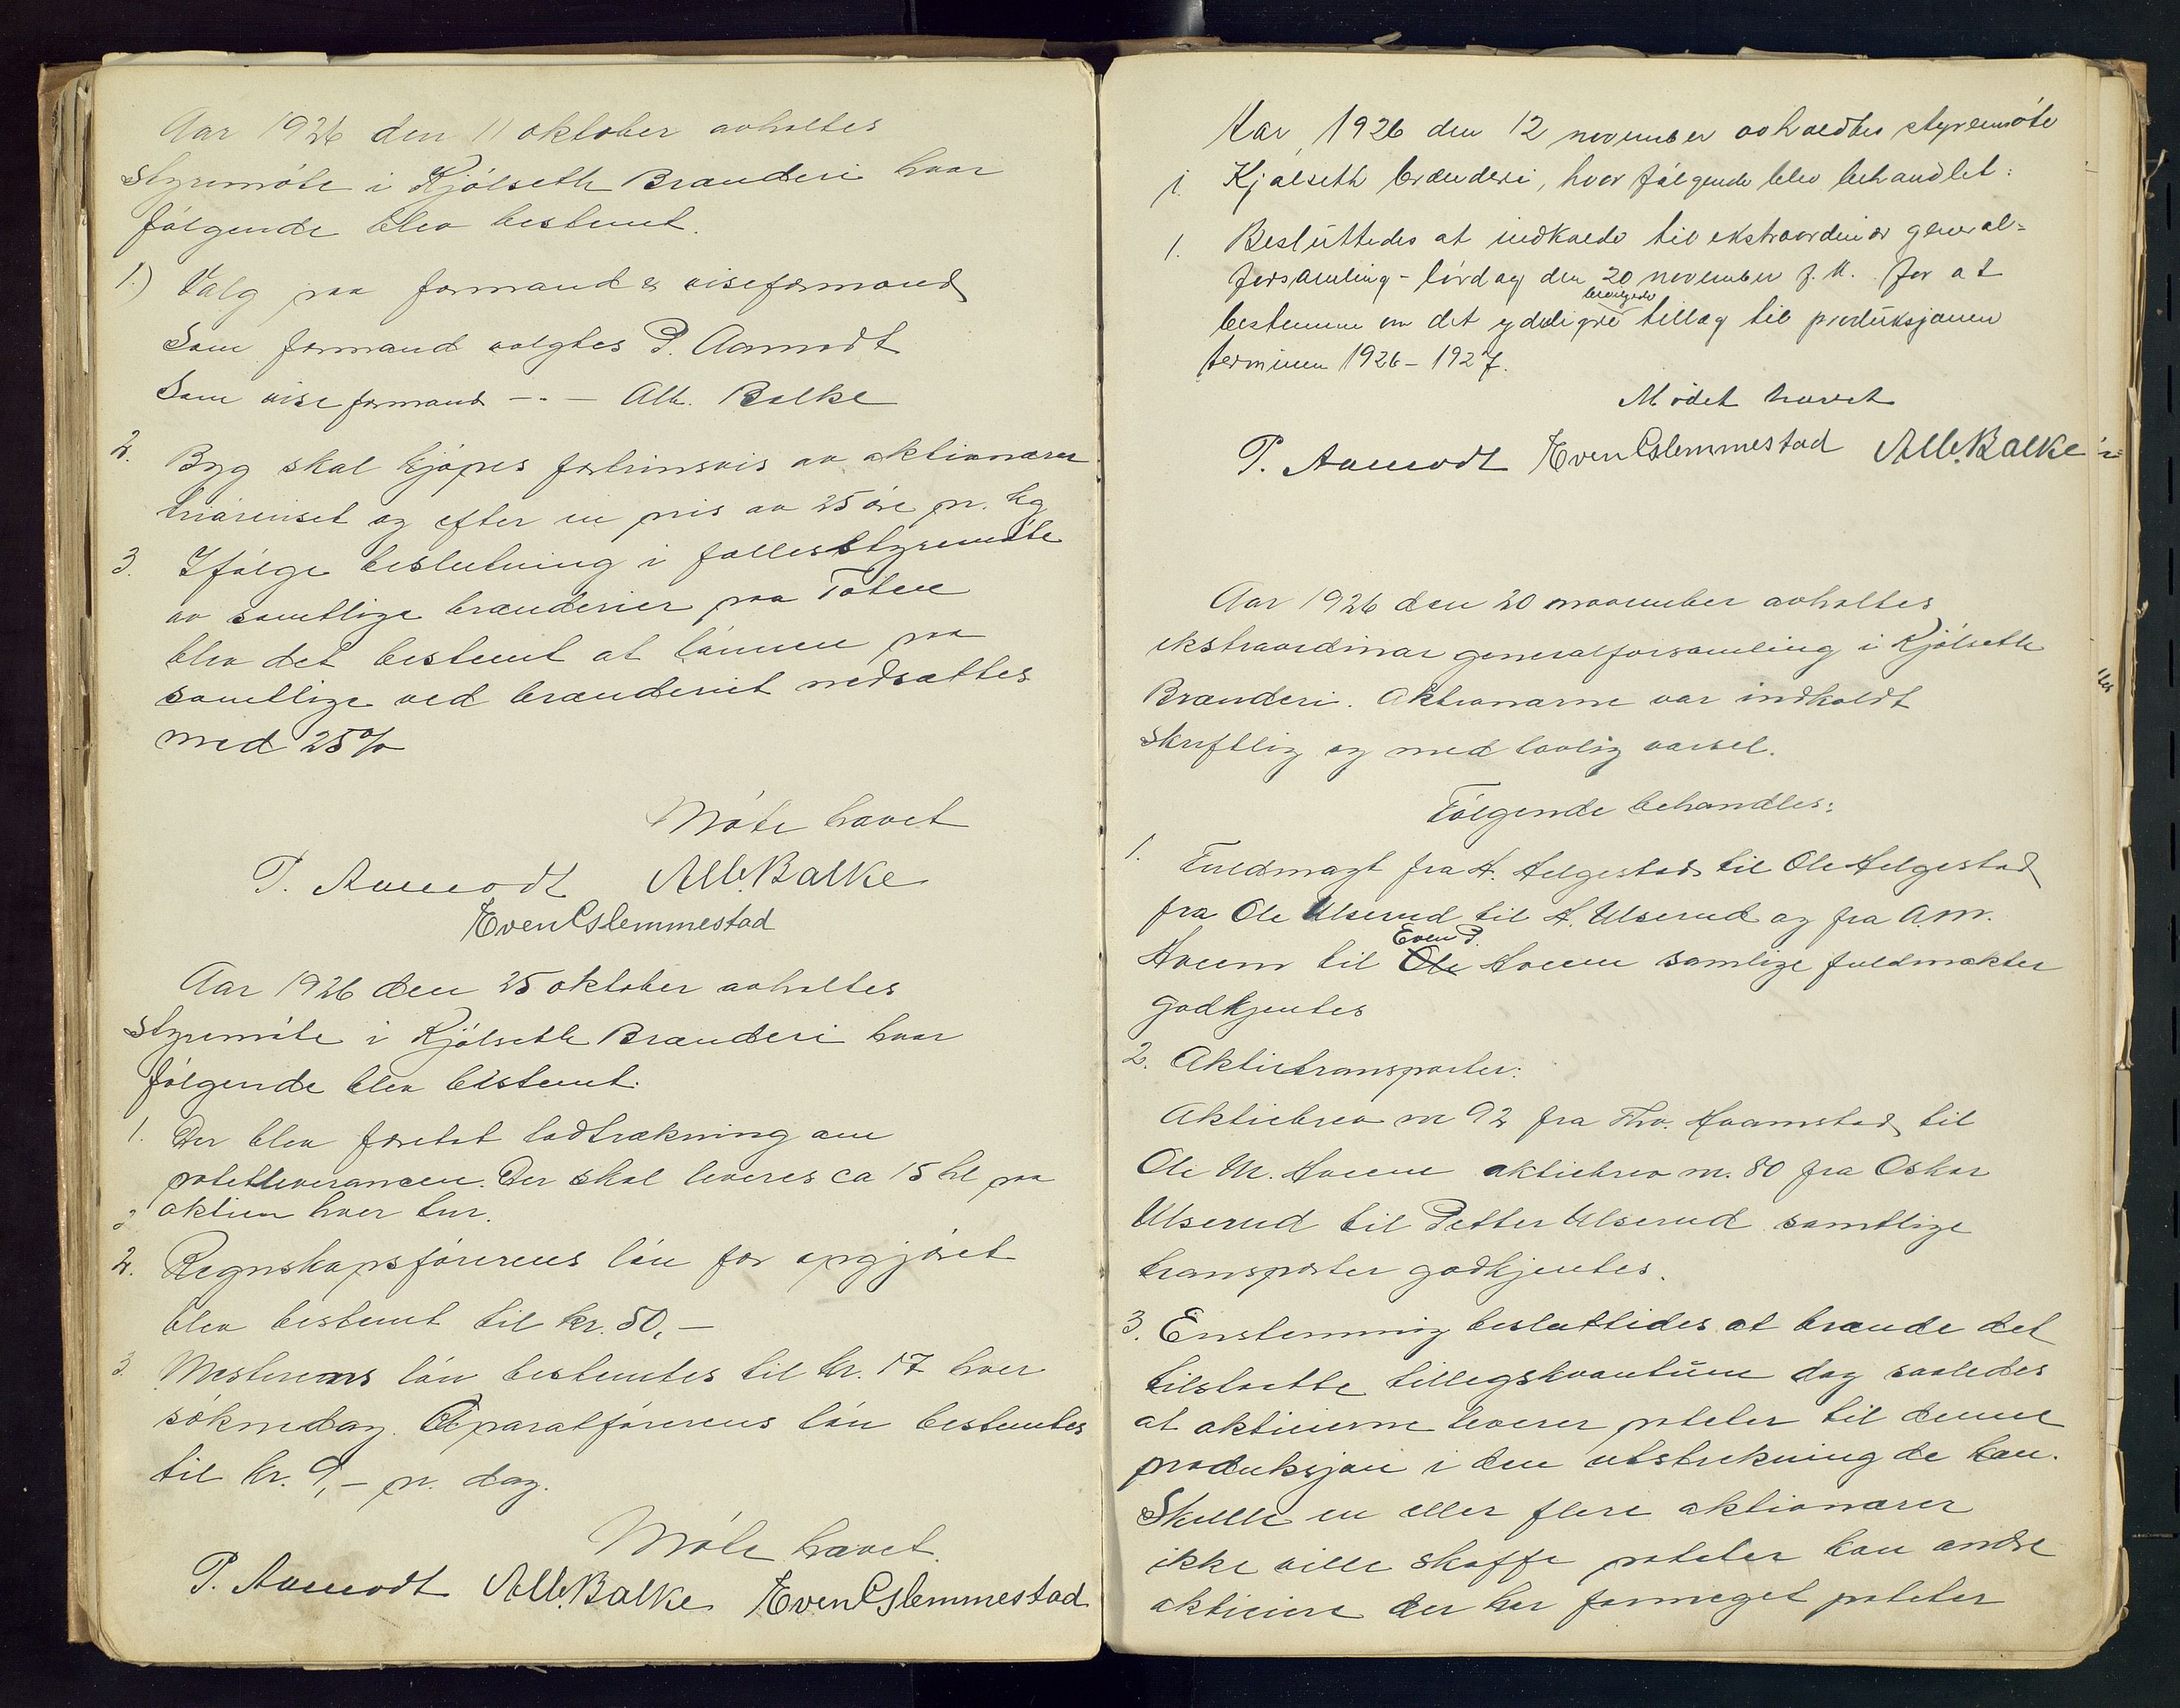 Aar 1926 den 11 oktober avholtes
styremöte i Kjölseth Brænderi hvor
fölgende blev bestemt.
1.) Valg paa formand & viseformand
Som formand valgtes P. Aamodt
Som viseformand -"- Alb. Balke
2. Byg skal kjöpes fortrinsvis av aktionærer
triörenset og efter en pris av 25 öre pr. kg
3. Ifölge beslutning i fællesstyremöte
av samtlige brænderier paa Toten
blev det bestemt at lönnen paa
samtlige ved brænderiet nedsættes
med 25%
Möte hævet
P. Aamodt Alb. Balke
Even Glemmestad
Aar 1926 den 25 oktober avholtes
styremöte i Kjölseth Brænderi hvor
fölgende blev bestemt.
1. Der blev foretat lodtrækning om
potetleverancen. Der skal leveres ca 15 hl paa
aktien hver tur.
2. Regnskapsförerens lön for opgjöret
blev bestemt til kr. 50,-
3. Mesterens lön bestemtes til kr. 17 hver
söknedag. Aparatförerens lön bestemtes
til kr. 9,- pr. dag.
Möte hævet.
P. Aamodt Alb. Balke Even Glemmestad
Aar 1926 den 12 november avholdtes styremöte
i Kjölseth brænderi, hvor fölgende blev behandlet:
1. Besluttedes at indkalde til ekstraordinær general=
forsamling - lördag den 20 november f. k. for at
bestemme om det yderligere bevilgede tillæg til produksjonen
terminen 1926-1927.
Mödet hævet
P. Aamodt Even Glemmestad Alb. Balke
Aar 1926 den 20 november avholtes
ekstraordinær generalforsamling i Kjölseth
Brænderi. Aktionærne var indkaldt
skriftlig og med lovlig varsel.
Fölgende behandles:
1. Fuldmagt fra H. Helgestad til Ole Helgestad
fra Ole Ulserud til H. Ulserud og fra A.M.
Hveem til Ole Even P. Hveem samlige fuldmakter
godkjentes
2. Aktietransporter:
Aktiebrev nr 92 fra Thv. Hvamstad til
Ole M. Hveem aktiebrev nr. 80 fra Oskar
Ulserud til Petter Ulserud samtlige
transporter godkjentes.
3. Enstemmig besluttedes at brænde det
tilstaatte tillegskvantum dog saaledes
at aktieierne leverer poteter til denne
produksjon i den utstrekning de kan.
Skulle en eller flere aktionærer
ikke ville skaffe poteter kan andre
aktieiere der har formeget poteter